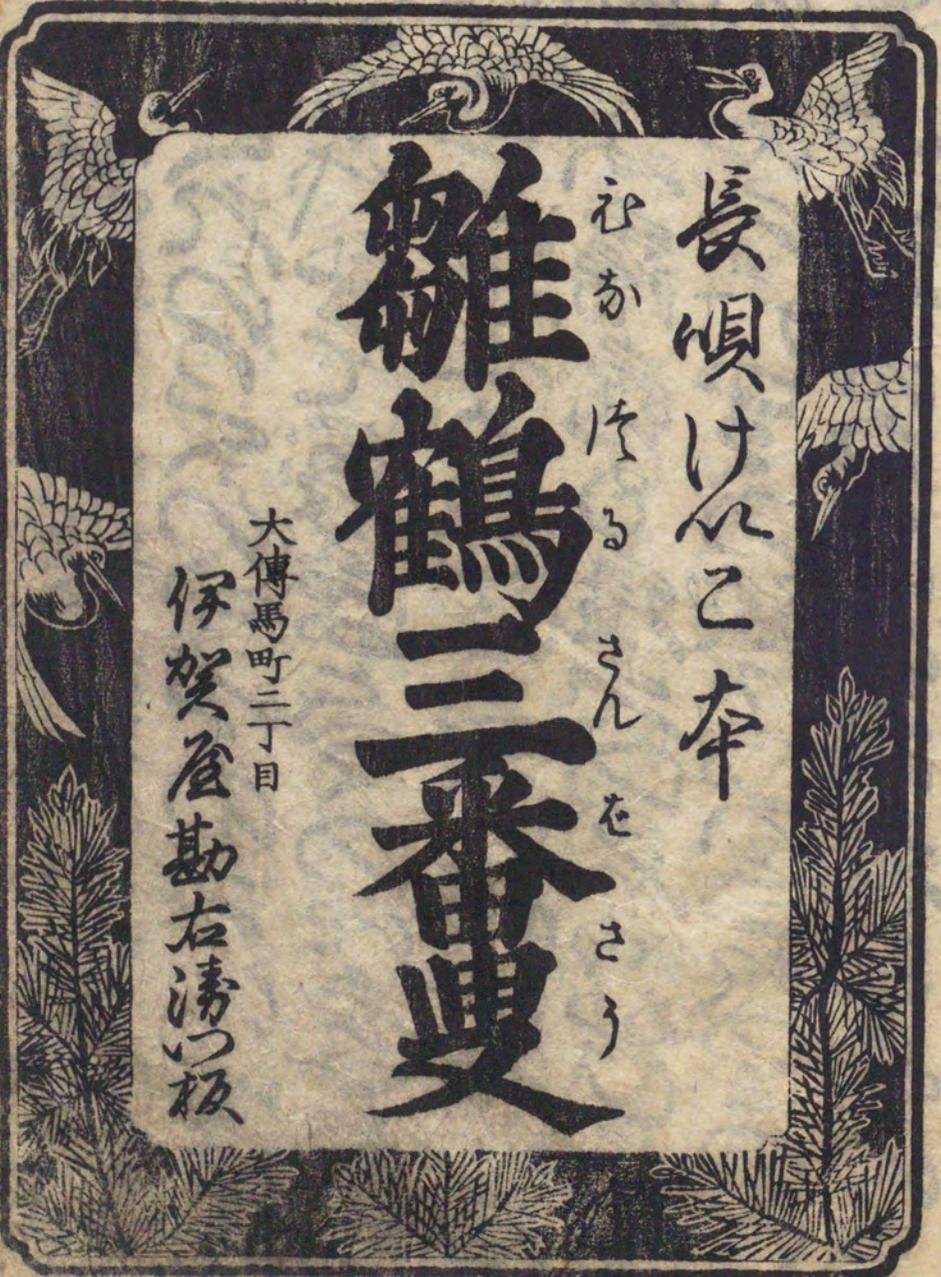 長唄けいこ本
ひな つる さん ばさう
雛鶴三番叟
大傳馬町二丁目
伊賀屋勘右衛門板